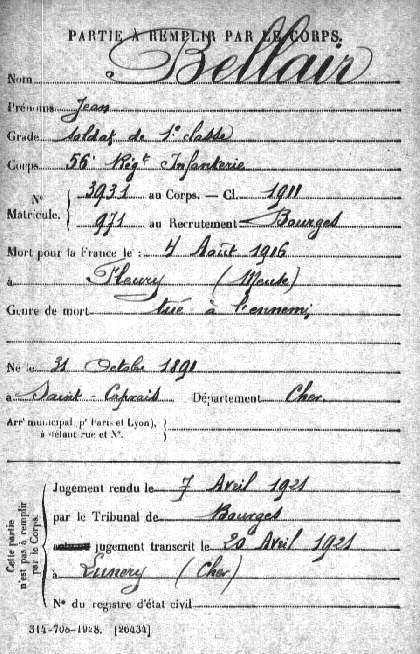 PARTIE À REMPLIR PAR LE CORPS.
Nom Bellair
Prénoms Jean
Grade soldat de 1e classe
Corps 56e Régt Infanterie
N° Matricule. 3931 au Corps. — Cl. 1911
971 au Recrutement Bourges
Mort pour la France le : 4 Août 1916
à Fleury (Meuse)
Genre de mort tué à l'ennemi
Né le 31 Octobre 1891
à Saint-Caprais Département Cher
Arrt municipal (pr Paris et Lyon),
à défaut rue et N°.
Cette partie n'est pas à remplir par le Corps.
Jugement rendu le 7 Avril 1921
par le Tribunal de Bourges
jugement transcrit le 20 Avril 1921
à Lunery (Cher)
N° du registre d'état civil
314-708-1928. [26434]